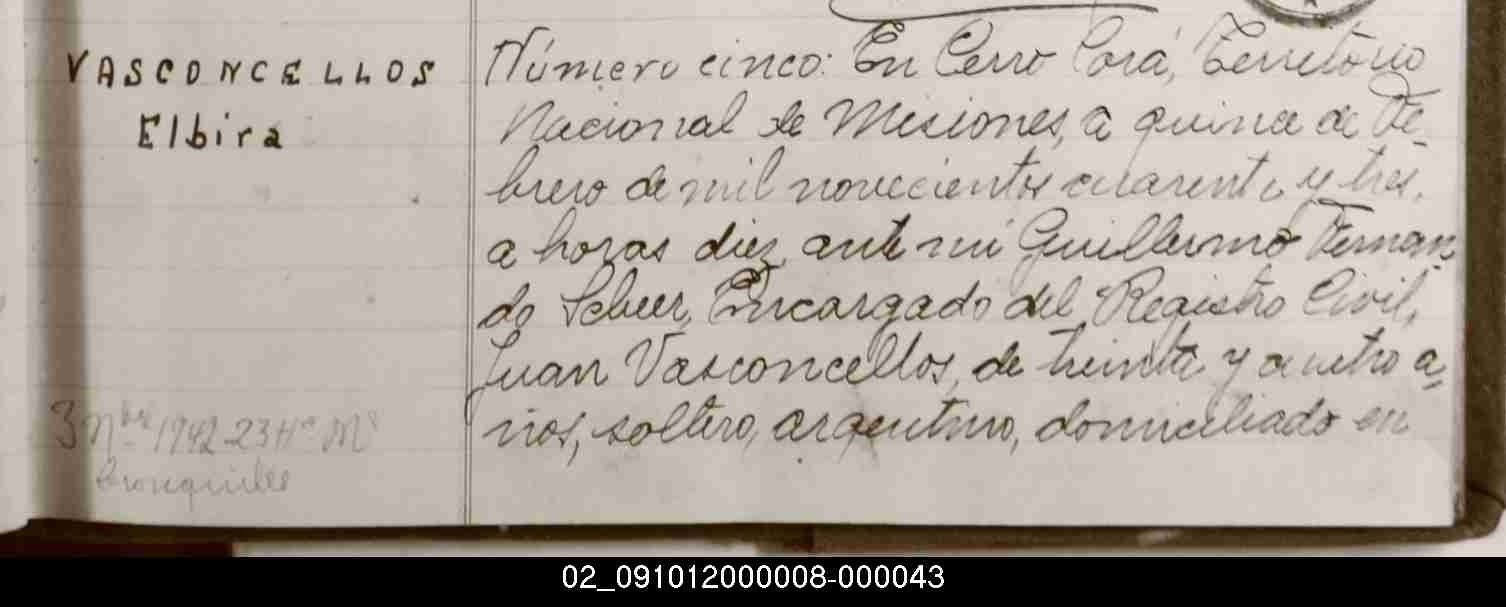 VASCONCELLOS
Elbira
Número cinco: En Cerro Corá, Territorio
Nacional de Misiones, a quince de Fe-
brero de mil novecientos cuarenta y tres,
a horas diez, ante mí Guillermo Fernan
do Scheer, Encargado del Registro Civil,
Juan Vasconcellos, de treinta y cuatro a-
ños, soltero, argentino, domiciliado en
3 Nbre 1942 - 23 Hs
02_091012000008-000043